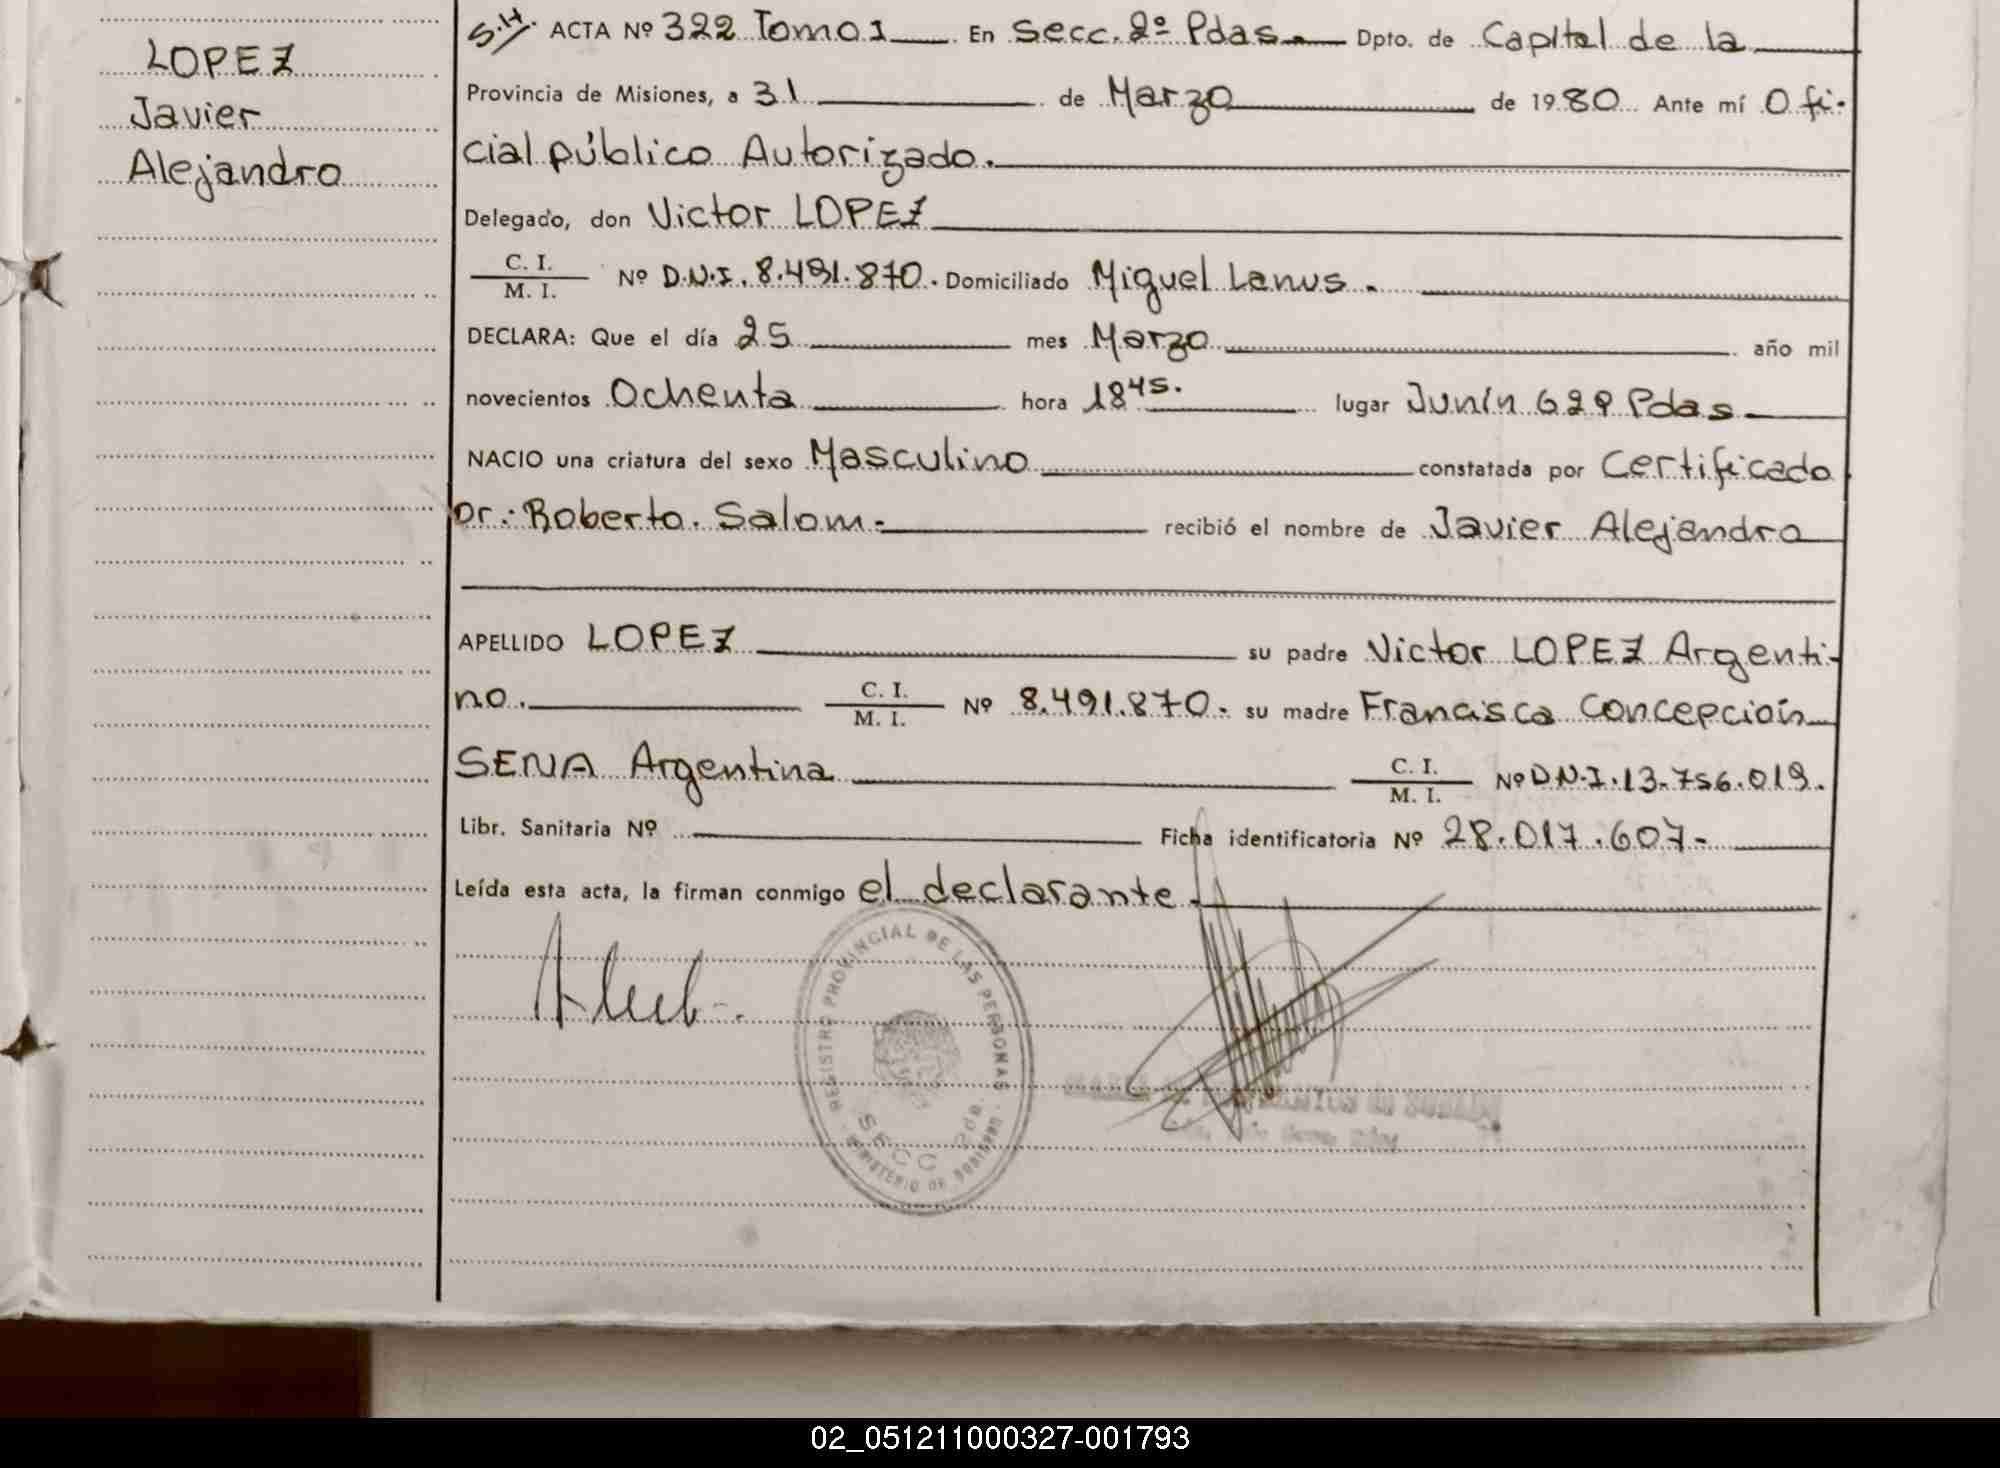 LOPEZ
Javier
Alejandro
S.H. ACTA Nº 322 Tomo 1 En Secc. 2º Pdas. Dpto. de Capital de la
Provincia de Misiones, a 31 de Marzo de 1980 Ante mí Ofi-
cial público Autorizado.
Delegado, don Victor LOPEZ
C. I.
M. I. Nº D.N.I. 8.491.870. Domiciliado Miguel Lanus.
DECLARA: Que el día 25 mes Marzo año mil
novecientos Ochenta hora 18 45. lugar Junín 629 Pdas
NACIO una criatura del sexo Masculino constatada por Certificado
Dr.: Roberto. Salom.- recibió el nombre de Javier Alejandro
APELLIDO LOPEZ su padre Victor LOPEZ Argenti-
no. C. I.
M. I. Nº 8.491.870. su madre Francisca Concepción
SENA Argentina C. I.
M. I. Nº D.N.I. 13.756.019.
Libr. Sanitaria Nº Ficha identificatoria Nº 28.017.607-
Leída esta acta, la firman conmigo el declarante.
REGISTRO PROVINCIAL DE LAS PERSONAS
SECC 2da.
MINISTERIO DE GOBIERNO
02_051211000327-001793